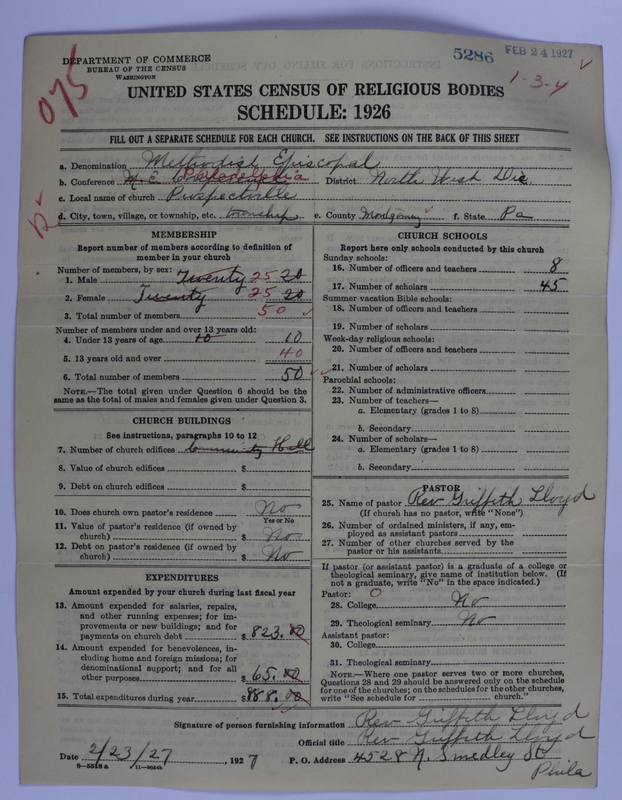 DEPARTMENT OF COMMERCE
BUREAU OF THE CENSUS
WASHINGTON
5286 FEB 24 1927
075
1-3-4
UNITED STATES CENSUS OF RELIGIOUS BODIES
SCHEDULE: 1926
FILL OUT A SEPARATE SCHEDULE FOR EACH CHURCH. SEE INSTRUCTIONS ON THE BACK OF THIS SHEET
a. Denomination Methodist Episcopal
b. Conference M. E. Philadelphia District North West Dis
c. Local name of church Prospectville
d. City, town, village, or township, etc. township e. County Montgomery f. State Pa
MEMBERSHIP
Report number of members according to definition of
member in your church
Number of members, by sex:
1. Male Twenty 25 20
2. Female Twenty 25 20
3. Total number of members 50
Number of members under and over 13 years old:
4. Under 13 years of age 10 10
5. 13 years old and over 40
6. Total number of members 50
NOTE.—The total given under Question 6 should be
same as the total of males and females given under Question 3.
CHURCH BUILDINGS
See instructions, paragraphs 10 to 12
7. Number of church edifices Community Hall
8. Value of church edifices $
9. Debt on church edifices $
10. Does church own pastor's residence No
Yes or No
11. Value of pastor's residence (if owned by
church) $ No
12. Debt on pastor's residence (if owned by
church) $ No
EXPENDITURES
Amount expended by your church during last fiscal year
13. Amount expended for salaries, repairs,
and other running expenses; for im-
provements or new buildings; and for
payments on church debt $ 823.00
14. Amount expended for benevolences, in-
cluding home and foreign missions; for
denominational support; and for all
other purposes $ 65.00
15. Total expenditures during year $ 888.00
CHURCH SCHOOLS
Report here only schools conducted by this church
Sunday schools:
16. Number of officers and teachers 8
17. Number of scholars 45
Summer vacation Bible schools:
18. Number of officers and teachers
19. Number of scholars
Week-day religious schools:
20. Number of officers and teachers
21. Number of scholars
Parochial schools:
22. Number of administrative officers
23. Number of teachers—
a. Elementary (grades 1 to 8)
b. Secondary
24. Number of scholars—
a. Elementary (grades 1 to 8)
b. Secondary
PASTOR
25. Name of pastor Rev Griffith Lloyd
(If church has no pastor, write "None")
26. Number of ordained ministers, if any, em-
ployed as assistant pastors
27. Number of other churches served by the
pastor or his assistants
If pastor (or assistant pastor) is a graduate of a college or
theological seminary, give name of institution below. (If
not a graduate, write "No" in the space indicated.)
Pastor: 0
28. College No
29. Theological seminary No
Assistant pastor:
30. College
31. Theological seminary
NOTE.—Where one pastor serves two or more churches,
Questions 28 and 29 should be answered only on the schedule
for one of the churches; on the schedules for the other churches,
write "See schedule for church."
Signature of person furnishing information Rev Griffith Lloyd
Official title Rev Griffith Lloyd
Date 2/23/27, 1927 P. O. Address 4528 N. Smedley St
Phila
8—5518a